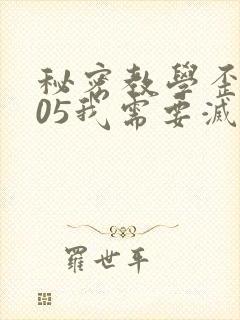 秘密教學歪
05我需要滅
羅世平